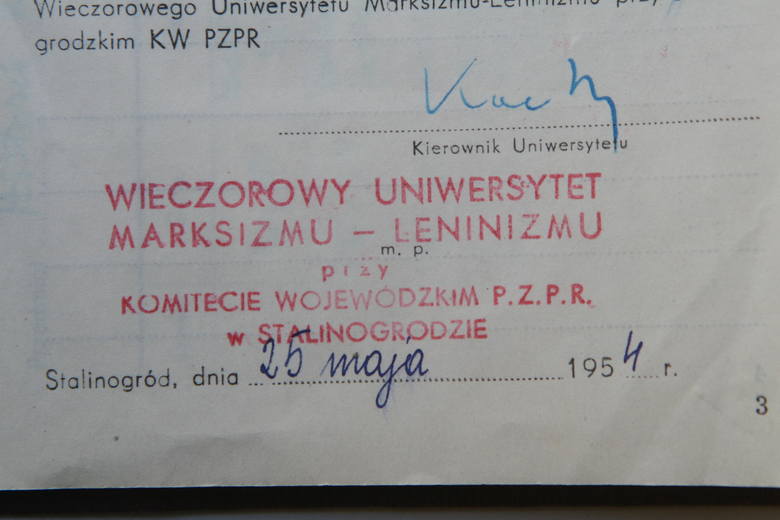 Wieczorowego Uniwersytetu Marksizmu-Leninizmu przy
grodzkim KW PZPR
Kierownik Uniwersytetu
WIECZOROWY UNIWERSYTET
MARKSIZMU – LENINIZMU
m. p.
przy
KOMITECIE WOJEWÓDZKIM P.Z.P.R.
w STALINOGRODZIE
Stalinogród, dnia 25 maja 1954 r.
3